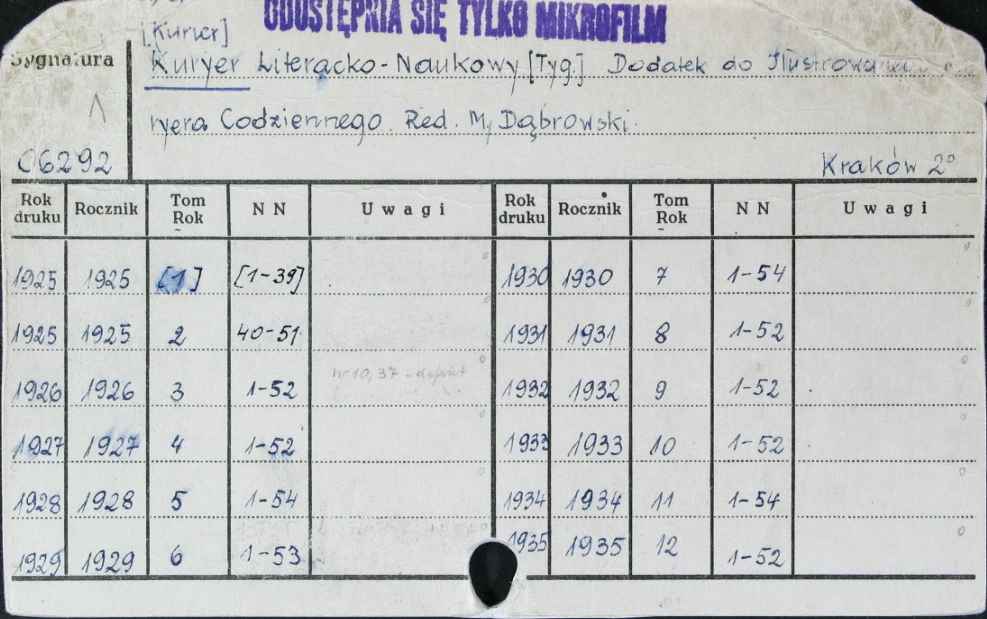 UDOSTĘPNIA SIĘ TYLKO MIKROFILM
[Kurier]
Sygnatura Kuryer Literacko-Naukowy [Tyg.] Dodatek do Ilustrowan
ryera Codziennego. Red. M. Dąbrowski.
C6292 Kraków 2°
Rok druku Rocznik Tom Rok NN Uwagi Rok druku Rocznik Tom Rok NN Uwagi
1925 1925 [1] [1-39] 1930 1930 7 1-54
1925 1925 2 40-51 1931 1931 8 1-52
1926 1926 3 1-52 nr 10, 37 1932 1932 9 1-52
1927 1927 4 1-52 1933 1933 10 1-52
1928 1928 5 1-54 1934 1934 11 1-54
1929 1929 6 1-53 1935 1935 12 1-52